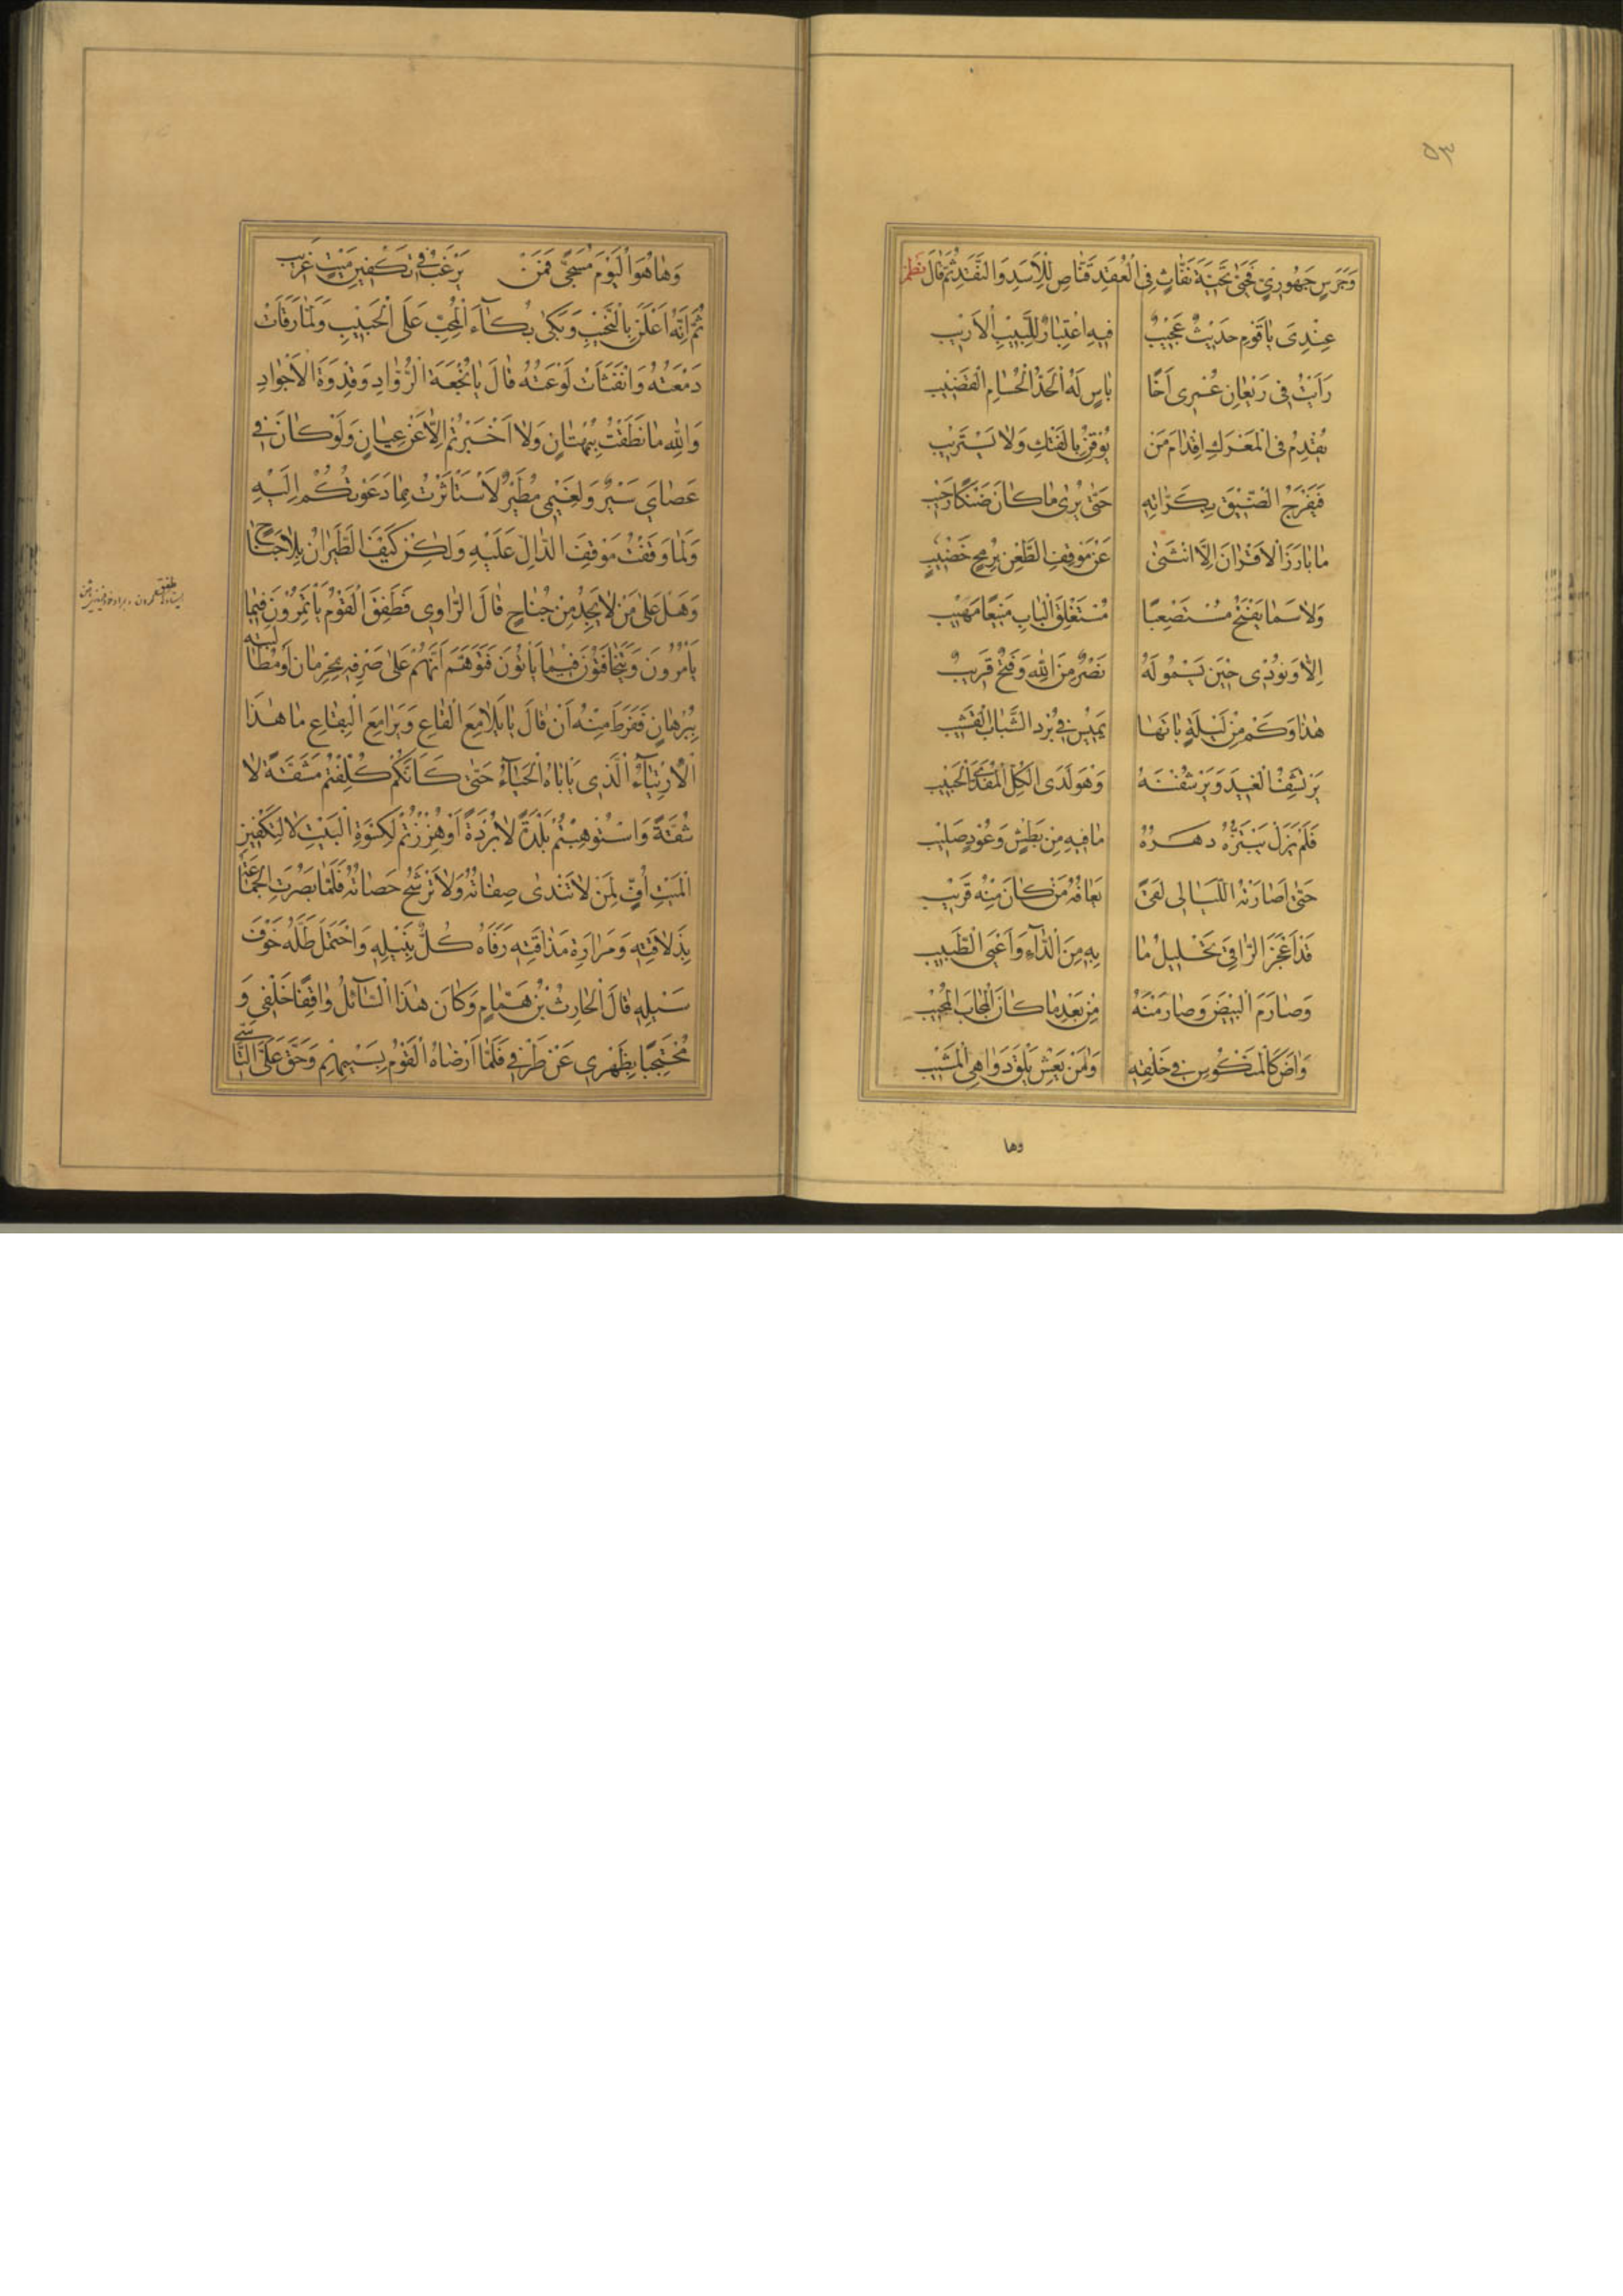 ٥٣
وَجَرْسٍ جَهْوَرِيٍّ فَحَيّٰ تَحِيَّةَ نَفَّاثٍ فِي الْعُقَدِ قَنَّاصٍ لِلْأَسَدِ وَالنَّقَدِ ثُمَّ قَالَ نظم
عِنْدِى يَا قَوْمِ حَدِيْثٌ عَجِيْبٌ فِيهِ اعْتِبَارٌ لِلَّبِيْبِ الْاَرِيْبِ
رَاَيْتُ فِى رَيْعَانِ عُمْرِى اَخًا بَاسٍ لَهُ الْحَدُّ الْحُسَامِ الْقَضِيْبِ
يُقْدِمُ فِى الْمَعْرَكِ اِقْدَامَ مَنْ يُوقِنُ بِالْفَتْكِ وَلَا يَسْتَرِيْب
فَيَفْرِجُ الضِّيْقَ بِكَرَّاتِهِ حَتّٰى يُرٰى مَا كَانَ ضَنْكًا رَحِيْب
مَا بَارَزَ الْاَقْرَانَ اِلَّا انْثَنٰى عَنْ مَوْقِفِ الطَّعْنِ بِرُمْحٍ خَضِيْبٍ
وَلَا سَمَا يَفْتَحُ مُسْتَصْعِبًا مُسْتَغْلِقَ الْبَابِ مَنِيْعًا مَهِيْب
اِلَّا وَنُوْدِى حِيْنَ يَسْمُو لَهُ نَصْرٌ مِنَ اللّٰهِ وَفَتْحٌ قَرِيْبٌ
هٰذَا وَكَمْ مِنْ لَيْلَةٍ بَاتَهَا يَمِيْسُ فِي بُرْدِ الشَّبَابِ الْقَشِيْب
يَرْتَشِفُ الْغِيْدَ وَيَرْشُفْنَهُ وَهْوَ لَدَى الْكُلِّ الْمُفَدَّى الْحَبِيْب
فَلَمْ يَزَلْ يَبْتَزُّهُ دَهْرُهُ مَا فِيهِ مِنْ بَطْشٍ وَعُوْدٍ صَلِيْب
حَتّٰى اَصَارَتْهُ اللَّيَالِى لَقًى يَعَافُهُ مَنْ كَانَ مِنْهُ قَرِيْب
قَدْ اَعْجَزَ الرَّاقِيَ تَحْلِيْلُ مَا بِهِ مِنَ الدَّآءِ وَاَعْيَى الطَّبِيب
وَصَارَمَ الْبِيْضَ وَصَارَمْنَهُ مِنْ بَعْدِ مَا كَانَ الْمُجَابَ الْمُجِيْب
وَاٰضَ كَالْمَنْكُوْسِ فِي خَلْقِهِ وَمَنْ يَعِشْ يَلْقَ دَوَاهِى الْمَشِيْب
وها
وَهَا هُوَ الْيَوْمَ مُسَجًّى فَمَنْ يَرْغَبُ فِي تَكْفِيْنِ مَيْتٍ غَرِيْبٍ
ثُمَّ اِنَّهُ اَعْلَنَ بِالنَّحِيْبِ وَبَكٰى بُكَآءَ الْمُحِبِّ عَلَى الْحَبِيْبِ وَلَمَّا رَقَاَتْ
دَمْعَتُهُ وَانْفَثَأَتْ لَوْعَتُهُ قَالَ يَا نُجْعَةَ الرُّوَّادِ وَقِدْوَةَ الْاَجْوَادِ
وَاللّٰهِ مَا نَطَقْتُ بِبُهْتَانٍ وَلَا اَخْبَرْتُكُمْ اِلَّا عَنْ عِيَانٍ وَلَوْ كَانَ فِي
عَصَايَ سَيْرٌ وَلِغَيْمِي مُطَيْرٌ لَاسْتَأْثَرْتُ بِمَا دَعَوْتُكُمْ اِلَيْهِ
وَلَمَا وَقَفْتُ مَوْقِفَ الدَّالِّ عَلَيْهِ وَلٰكِنْ كَيْفَ الطَّيَرَانُ بِلَا جَنَاحٍ
وَهَلْ عَلٰى مَنْ لَا يَجِدُ مِنْ جُنَاحٍ قَالَ الرَّاوِي فَطَفِقَ الْقَوْمُ يَأْتَمِرُوْنَ فِيْمَا
يَأْمُرُوْنَ وَيَتَخَافَتُوْنَ فِيْمَا يَأْتُوْنَ فَتَوَهَّمَ اَنَّهُمْ عَلٰى صَرْفِهِ بِحِرْمَانٍ اَوْ مُطَالَبَتِهِ
بِبُرْهَانٍ فَفَرَطَ مِنْهُ اَنْ قَالَ يَا يَلَامِعَ الْقَاعِ وَيَرَامِعَ الْبِقَاعِ مَا هٰذَا
الْاِرْتِيَآءُ الَّذِى يَأْبَاهُ الْحَيَآءُ حَتّٰى كَاَنَّكُمْ كُلِّفْتُمْ مَشَقَّةً لَا
شُقَّةً وَاسْتُوْهِبْتُمْ بَلْدَةً لَا بُرْدَةً اَوْ هُزِزْتُمْ لِكِسْوَةِ الْبَيْتِ لَا لِتَكْفِيْنِ
الْمَيْتِ اُفٍّ لِمَنْ لَا تَنْدٰى صَفَاتُهُ وَلَا تَرْشَحُ حَصَاتُهُ فَلَمَّا بَصُرَتِ الْجَمَاعَةُ
بِذَلَاقَتِهِ وَمَرَارَةِ مَذَاقَتِهِ رَفَاَهُ كُلٌّ بِنَيْلِهِ وَاحْتَمَلَ طَلَّهُ خَوْفَ
سَيْلِهِ قَالَ الْحَارِثُ بْنُ هَمَّامٍ وَكَانَ هٰذَا السَّآئِلُ وَاقِفًا خَلْفِي وَ
مُحْتَجِبًا بِظَهْرِى عَنْ طَرْفِي فَلَمَّا اَرْضَاهُ الْقَوْمُ بِسَيْبِهِمْ وَحَقَّ عَلَيَّ التَّأَسِّي